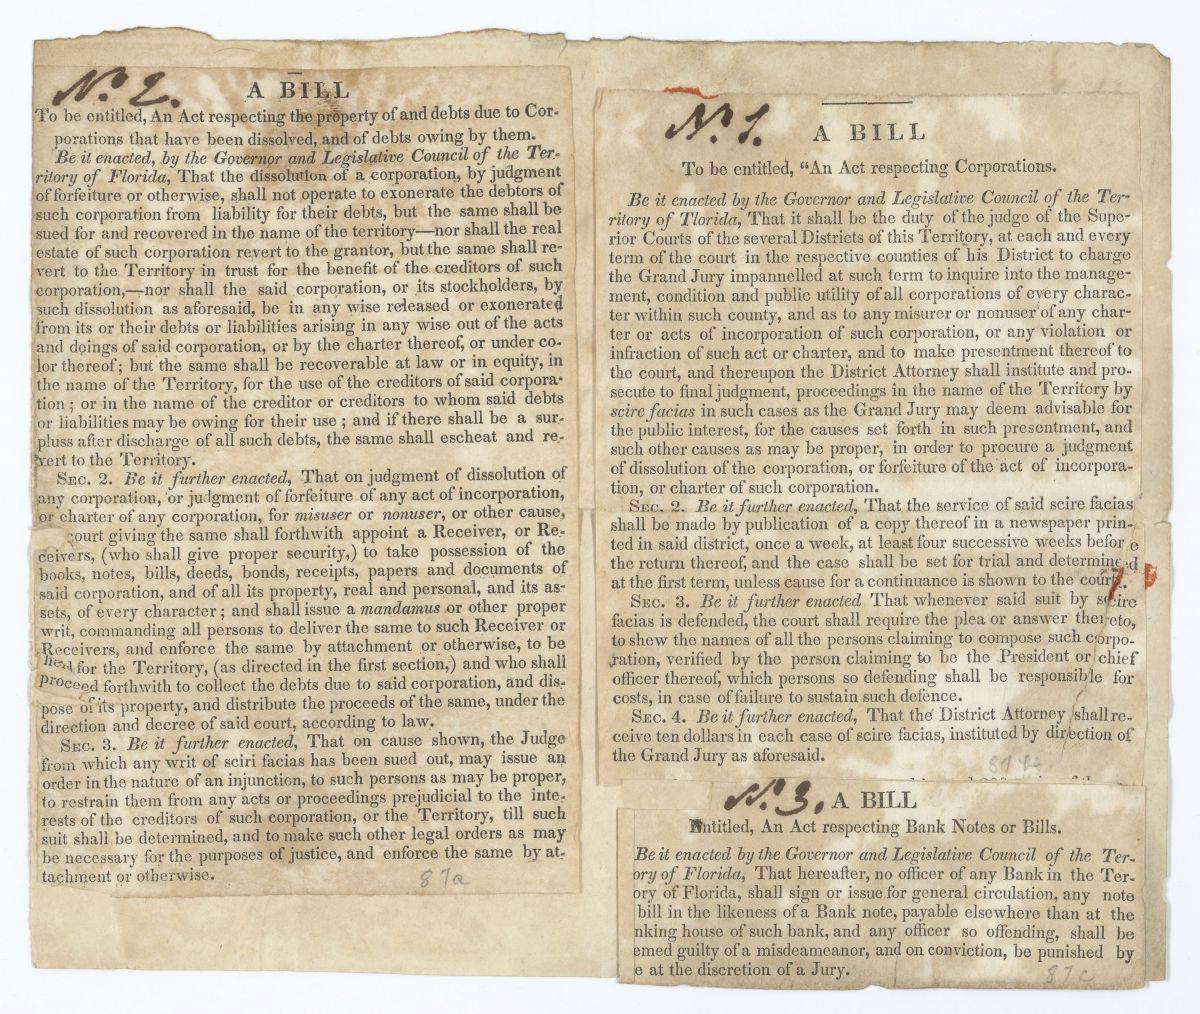 No. 2.
A BILL
To be entitled, An Act respecting the property of and debts due to Cor-
porations that have been dissolved, and of debts owing by them.
Be it enacted, by the Governor and Legislative Council of the Ter-
ritory of Florida, That the dissolution of a corporation, by judgment
of forfeiture or otherwise, shall not operate to exonerate the debtors of
such corporation from liability for their debts, but the same shall be
sued for and recovered in the name of the territory—nor shall the real
estate of such corporation revert to the grantor, but the same shall re-
vert to the Territory in trust for the benefit of the creditors of such
corporation,—nor shall the said corporation, or its stockholders, by
such dissolution as aforesaid, be in any wise released or exonerated
from its or their debts or liabilities arising in any wise out of the acts
and doings of said corporation, or by the charter thereof, or under co-
lor thereof; but the same shall be recoverable at law or in equity, in
the name of the Territory, for the use of the creditors of said corpora-
tion; or in the name of the creditor or creditors to whom said debts
or liabilities may be owing for their use; and if there shall be a sur-
pluss after discharge of all such debts, the same shall escheat and re-
vert to the Territory.
SEC. 2. Be it further enacted, That on judgment of dissolution of
any corporation, or judgment of forfeiture of any act of incorporation,
or charter of any corporation, for misuser or nonuser, or other cause,
court giving the same shall forthwith appoint a Receiver, or Re-
ceivers, (who shall give proper security,) to take possession of the
books, notes, bills, deeds, bonds, receipts, papers and documents of
said corporation, and of all its property, real and personal, and its as-
sets, of every character; and shall issue a mandamus or other proper
writ, commanding all persons to deliver the same to such Receiver or
Receivers, and enforce the same by attachment or otherwise, to be
held for the Territory, (as directed in the first section,) and who shall
proceed forthwith to collect the debts due to said corporation, and dis-
pose of its property, and distribute the proceeds of the same, under the
direction and decree of said court, according to law.
SEC. 3. Be it further enacted, That on cause shown, the Judge
from which any writ of sciri facias has been sued out, may issue an
order in the nature of an injunction, to such persons as may be proper,
to restrain them from any acts or proceedings prejudicial to the inte-
rests of the creditors of such corporation, or the Territory, till such
suit shall be determined, and to make such other legal orders as may
be necessary for the purposes of justice, and enforce the same by at-
tachment or otherwise.
87a
No. 1.
A BILL
To be entitled, "An Act respecting Corporations.
Be it enacted by the Governor and Legislative Council of the Ter-
ritory of Tlorida, That it shall be the duty of the judge of the Supe-
rior Courts of the several Districts of this Territory, at each and every
term of the court in the respective counties of his District to charge
the Grand Jury impannelled at such term to inquire into the manage-
ment, condition and public utility of all corporations of every charac-
ter within such county, and as to any misurer or nonuser of any char-
ter or acts of incorporation of such corporation, or any violation or
infraction of such act or charter, and to make presentment thereof to
the court, and thereupon the District Attorney shall institute and pro-
secute to final judgment, proceedings in the name of the Territory by
scire facias in such cases as the Grand Jury may deem advisable for
the public interest, for the causes set forth in such presentment, and
such other causes as may be proper, in order to procure a judgment
of dissolution of the corporation, or forfeiture of the act of incorpora-
tion, or charter of such corporation.
SEC. 2. Be it further enacted, That the service of said scire facias
shall be made by publication of a copy thereof in a newspaper prin-
ted in said district, once a week, at least four successive weeks before
the return thereof, and the case shall be set for trial and determined
at the first term, unless cause for a continuance is shown to the court.
SEC. 3. Be it further enacted That whenever said suit by scire
facias is defended, the court shall require the plea or answer thereto,
to shew the names of all the persons claiming to compose such corpo-
ration, verified by the person claiming to be the President or chief
officer thereof, which persons so defending shall be responsible for
costs, in case of failure to sustain such defence.
SEC. 4. Be it further enacted, That the District Attorney shall re-
ceive ten dollars in each case of scire facias, instituted by direction of
the Grand Jury as aforesaid.
No. 3.
A BILL
Entitled, An Act respecting Bank Notes or Bills.
Be it enacted by the Governor and Legislative Council of the Ter-
ory of Florida, That hereafter, no officer of any Bank in the Ter-
ory of Florida, shall sign or issue for general circulation, any note
bill in the likeness of a Bank note, payable elsewhere than at the
nking house of such bank, and any officer so offending, shall be
emed guilty of a misdeameanor, and on conviction, be punished by
e at the discretion of a Jury.
87c